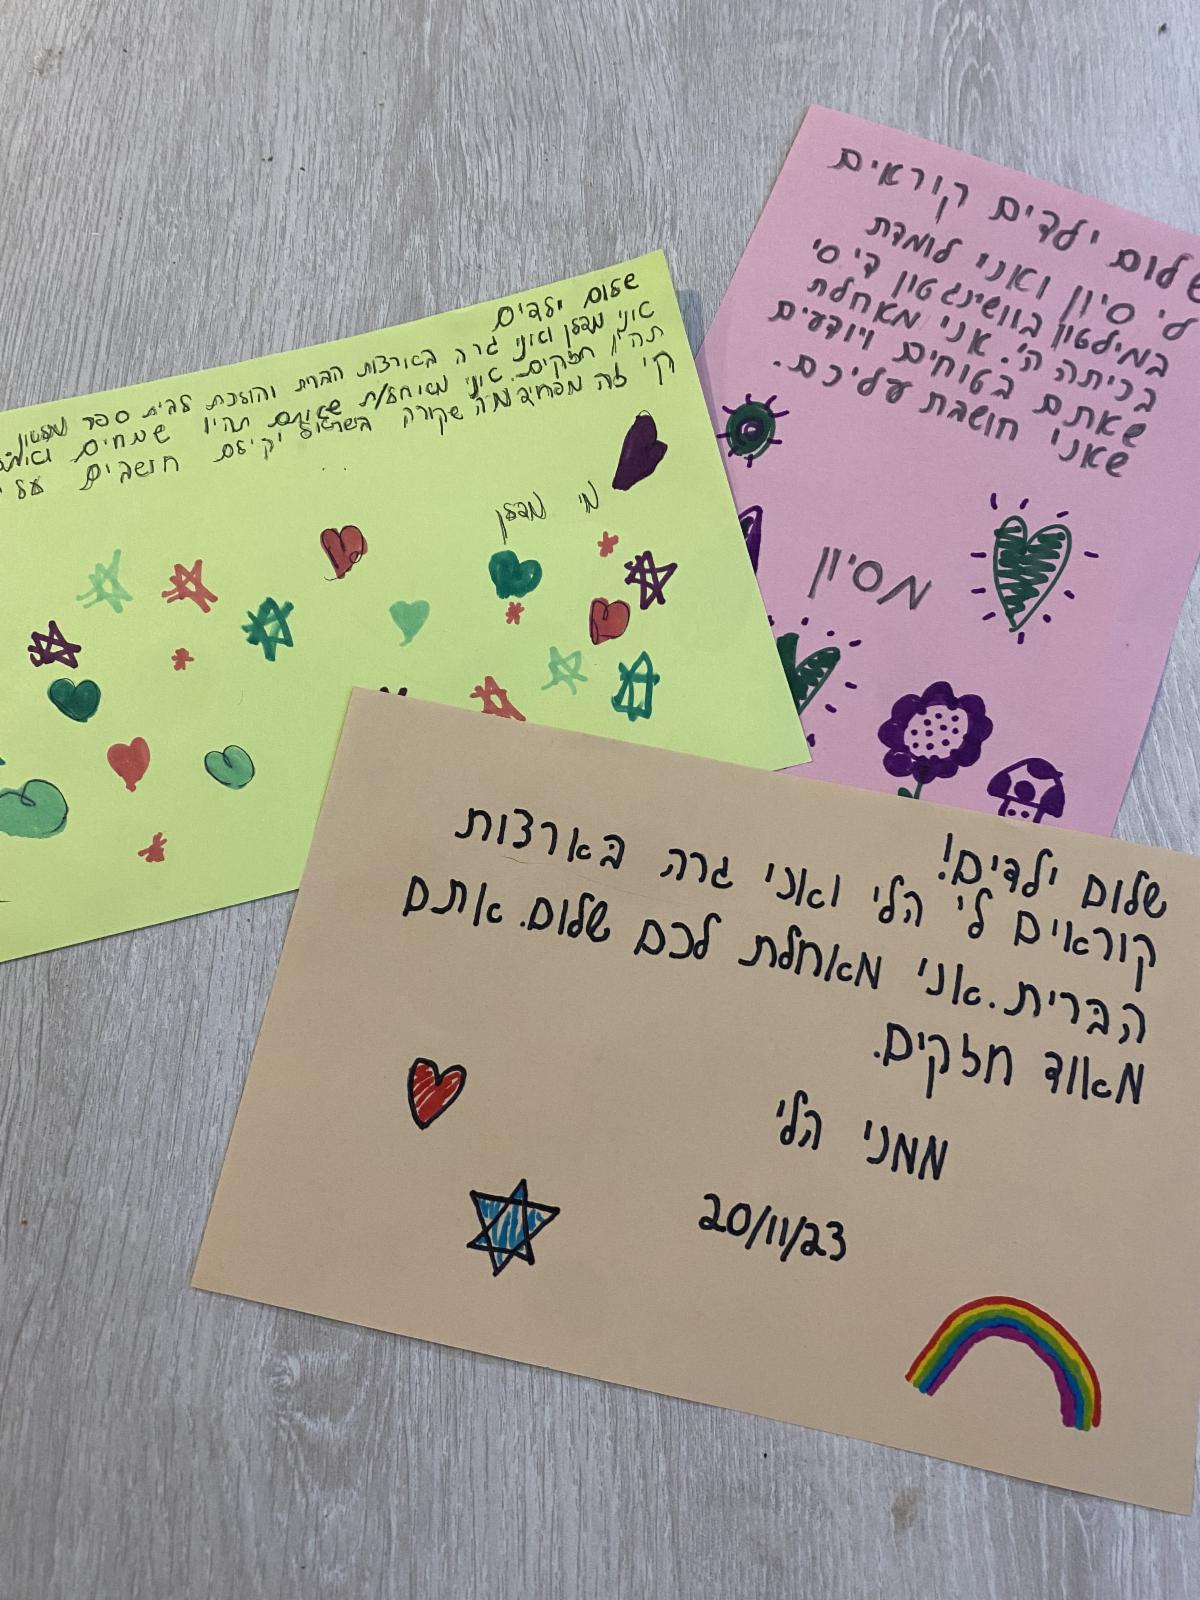 שלום ילדים
אני מדלן ואני גרה בארצות הברת והולכת לבית ספר מילטון.
תהיו חזקים. אני מאוחלת שאתם תהיו שמחים
זה מפחיד מה שקורה חושבים
מי מדלן
שלום ילדים קוראים
לי סיון ואני לומדת
במילטון בוושינגטון די סי
בכיתה ה'. אני מאחלת
שאתם בטוחים ויודעים
שאני חושבת עליכם.
מסיון
שלום ילדים!
קוראים לי הלי ואני גרה בארצות
הברית. אני מאחלת לכם שלום. אתם
מאוד חזקים.
ממני הלי
20/11/23